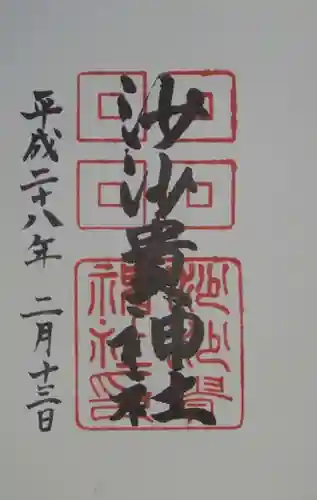 沙沙貴神社
平成二十八年 二月十三日
沙沙貴
神社印